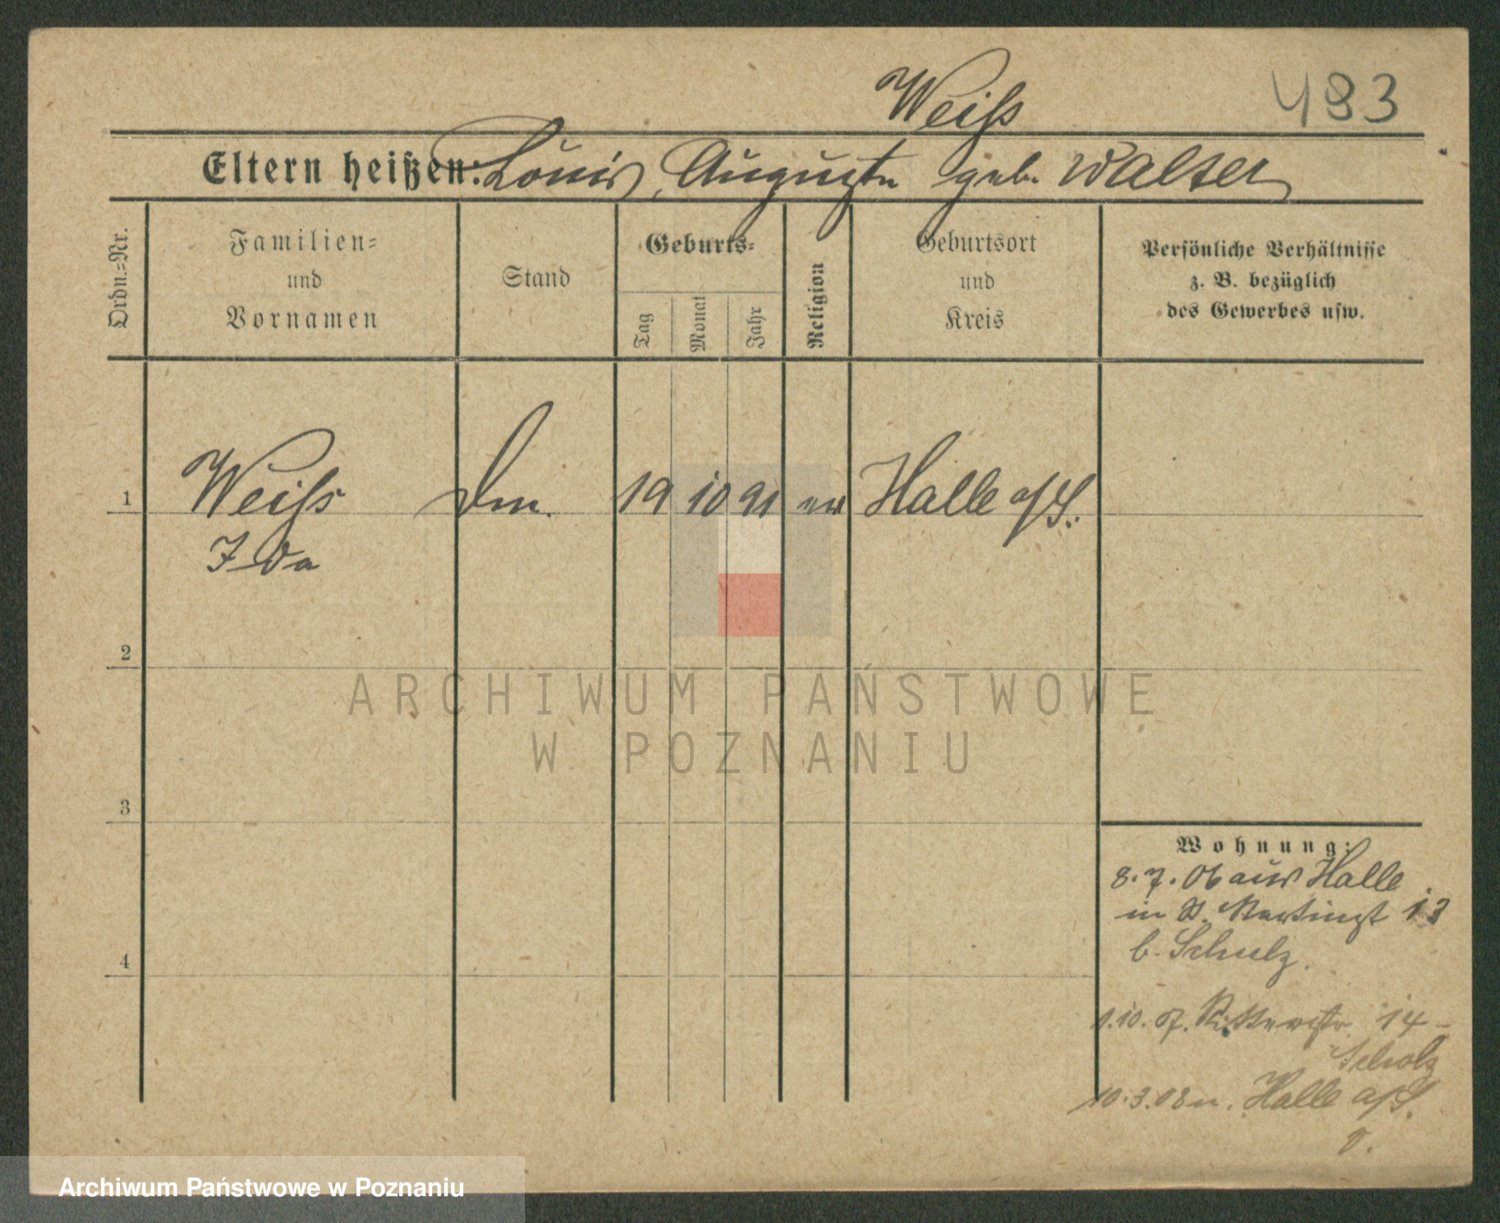 Weiß
483
Eltern heißen: Louis, Auguste geb. Walter
Ordn.=Nr.
Familien=
und
Vornamen
Stand
Geburts=
Tag
Monat
Jahr
Religion
Geburtsort
und
Kreis
Persönliche Verhältnisse
z. B. bezüglich
des Gewerbes usw.
1 Weiß 19 10 91 ev Halle a/S.
Ida
2
ARCHIWUM PAŃSTWOWE
W POZNANIU
3
Wohnung:
8.7.06 aus Halle
in 13
b. Schulz
4
1.10.07. Ritterstr. 14 -
Scholz
10.3.08 n. Halle a/S.
Archiwum Państwowe w Poznaniu